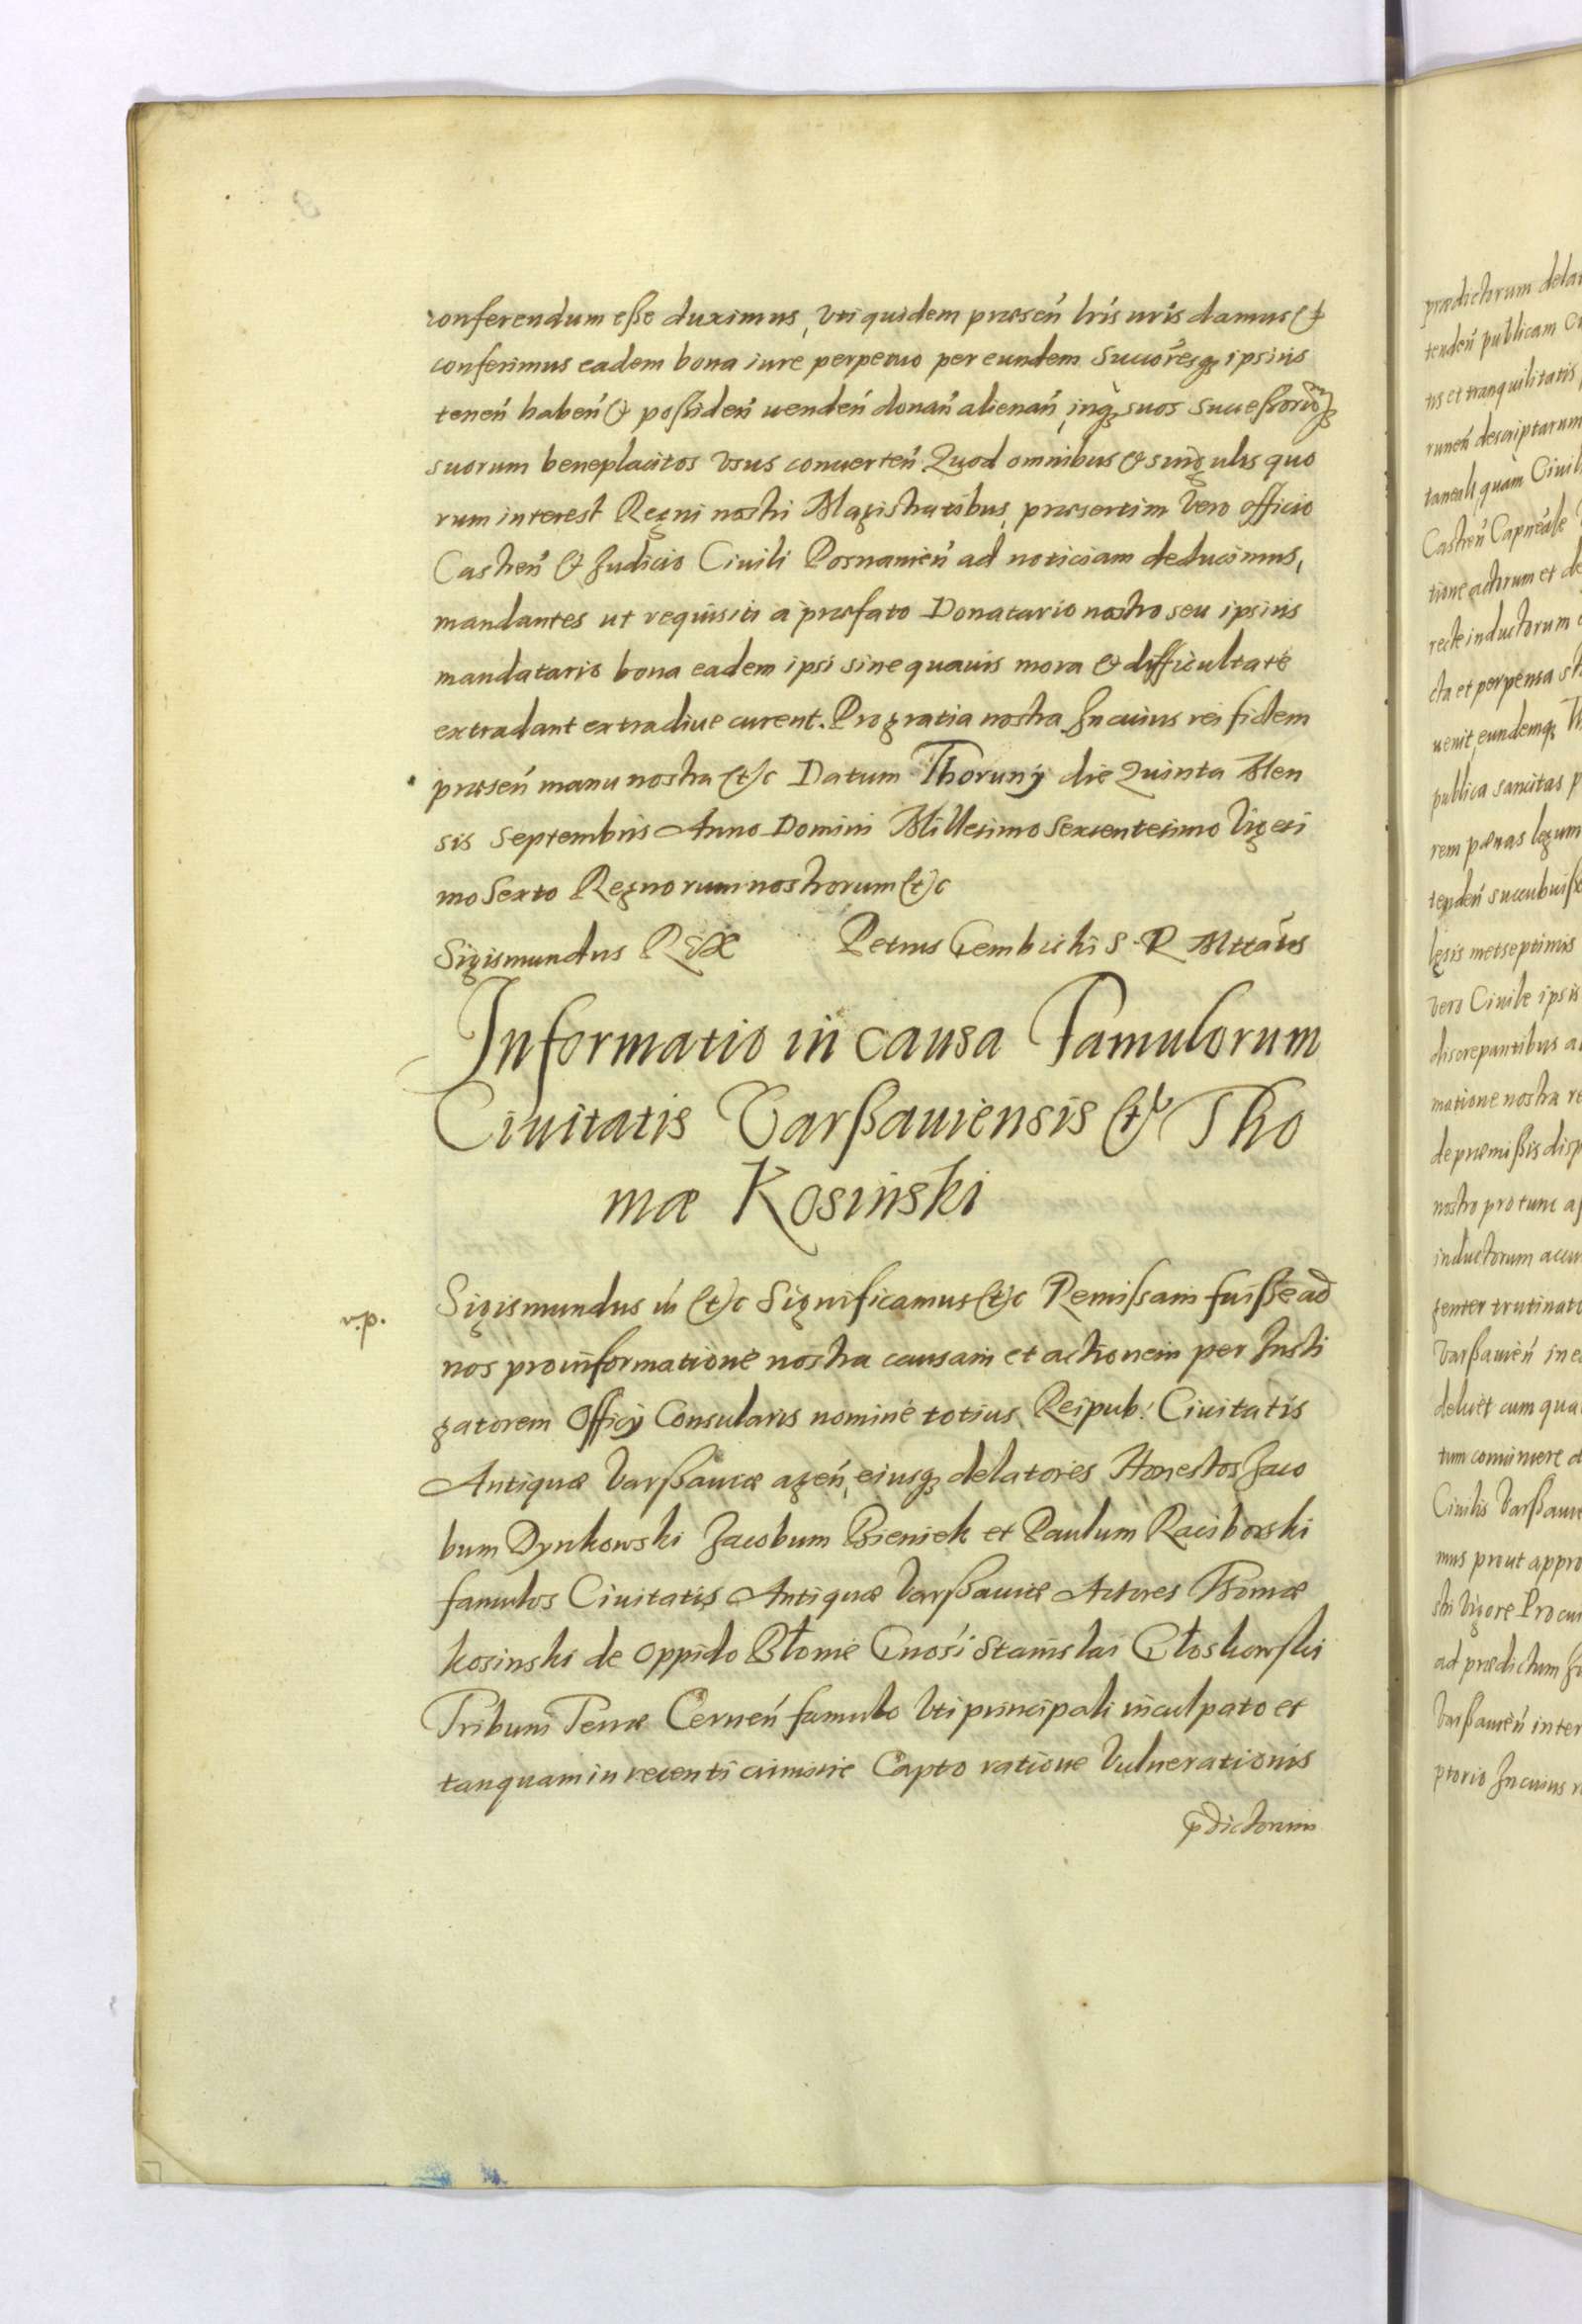 conferendum eße duximus, Vti quidem præseń lrīs nrīs damus &
conferimus eadem bona iure perpetuo per eundem Succōresq; ipsius
teneń habeń & poßideń uendeń donań alienań, inq; suos Successorūq;
suorum beneplacitos Vsus conuerteń Quod omnibus & singulis quo
rum interest Regni nostri Magistratibus, præsertim Vero officio
Castreń & Iudicio Ciuili Posnanień ad noticiam deducimus,
mandantes ut requisiti a præfato Donatario nostro seu ipsius
mandatario bona eadem ipsi sine quauis mora & difficultate
extradant extradiue curent. Pro gratia nostra In cuius rei fidem
præseń manu nostra &c Datum Thoruny die Quinta Men
sis Septembris Anno Domini Millesimo Sexcentesimo Vigesi
mo Sexto Regnorum nostrorum &c
Sigismundus REX Petrus Gembicki S. R. Mttāris
Informatio in causa Famulorum
Ciuitatis Varßauiensis & Tho
mæ Kosinski
v.p.
Sigismundus iii &c Significamus &c Remißam fuiße ad
nos pro informatione nostra causam et actionem per Insti
gatorem Officij Consularis nomine totius Reipub: Ciuitatis
Antiquæ Varßauiæ ageń, eiusq; delatores Honestos Iaco
bum Dynkowski Iacobum Bieniek et Paulum Raciborski
famulos Ciuitatis Antiquæ Varßauiæ Actores Thomæ
Kosinski de Oppido Błonie Gnosi Stanislai Głoskowski
Tribuni Terræ Cerneń famulo Vti principali inculpato et
tanquam in recenti crimine Capto ratione Vulnerationis
p̄dictorum
prædictorum
tendeń publicam
tis et tranquilitatis
runeń descriptarum
quàm
Castreń Capneāle
tione actorum et
recte inductorum
cta et perpensa
uenit, eundemq;
publica sancitas
rem pænas legum
tendeń
metseptimis
Vero Ciuile ipsis
discrepantibus
matione nostra
de præmißis
nostro pro tunc
inductorum
trutinato
Varßauień in
cum
tum conuincere
Ciuilis
mus prout
stri Vigore Pro
ad prædictum
Varßauień inter
ptorio In cuius